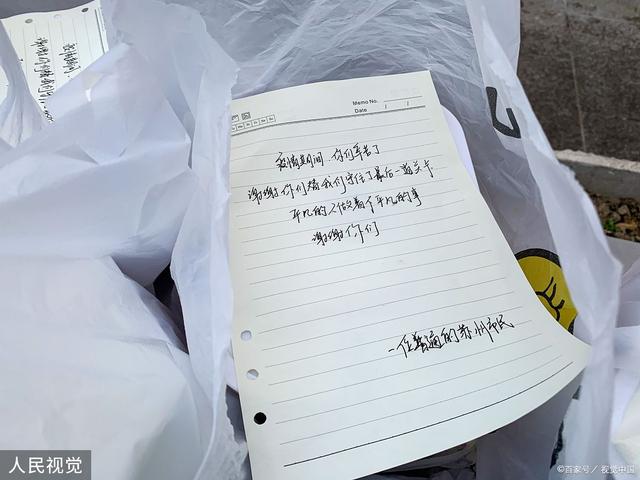 Memo No.
Date / /
疫情期间 你们辛苦了
谢谢你们替我们守住了最后一道关卡
平凡的人做着不平凡的事
谢谢你们
一位普通的苏州市民
人民视觉
©百家号/视觉中国